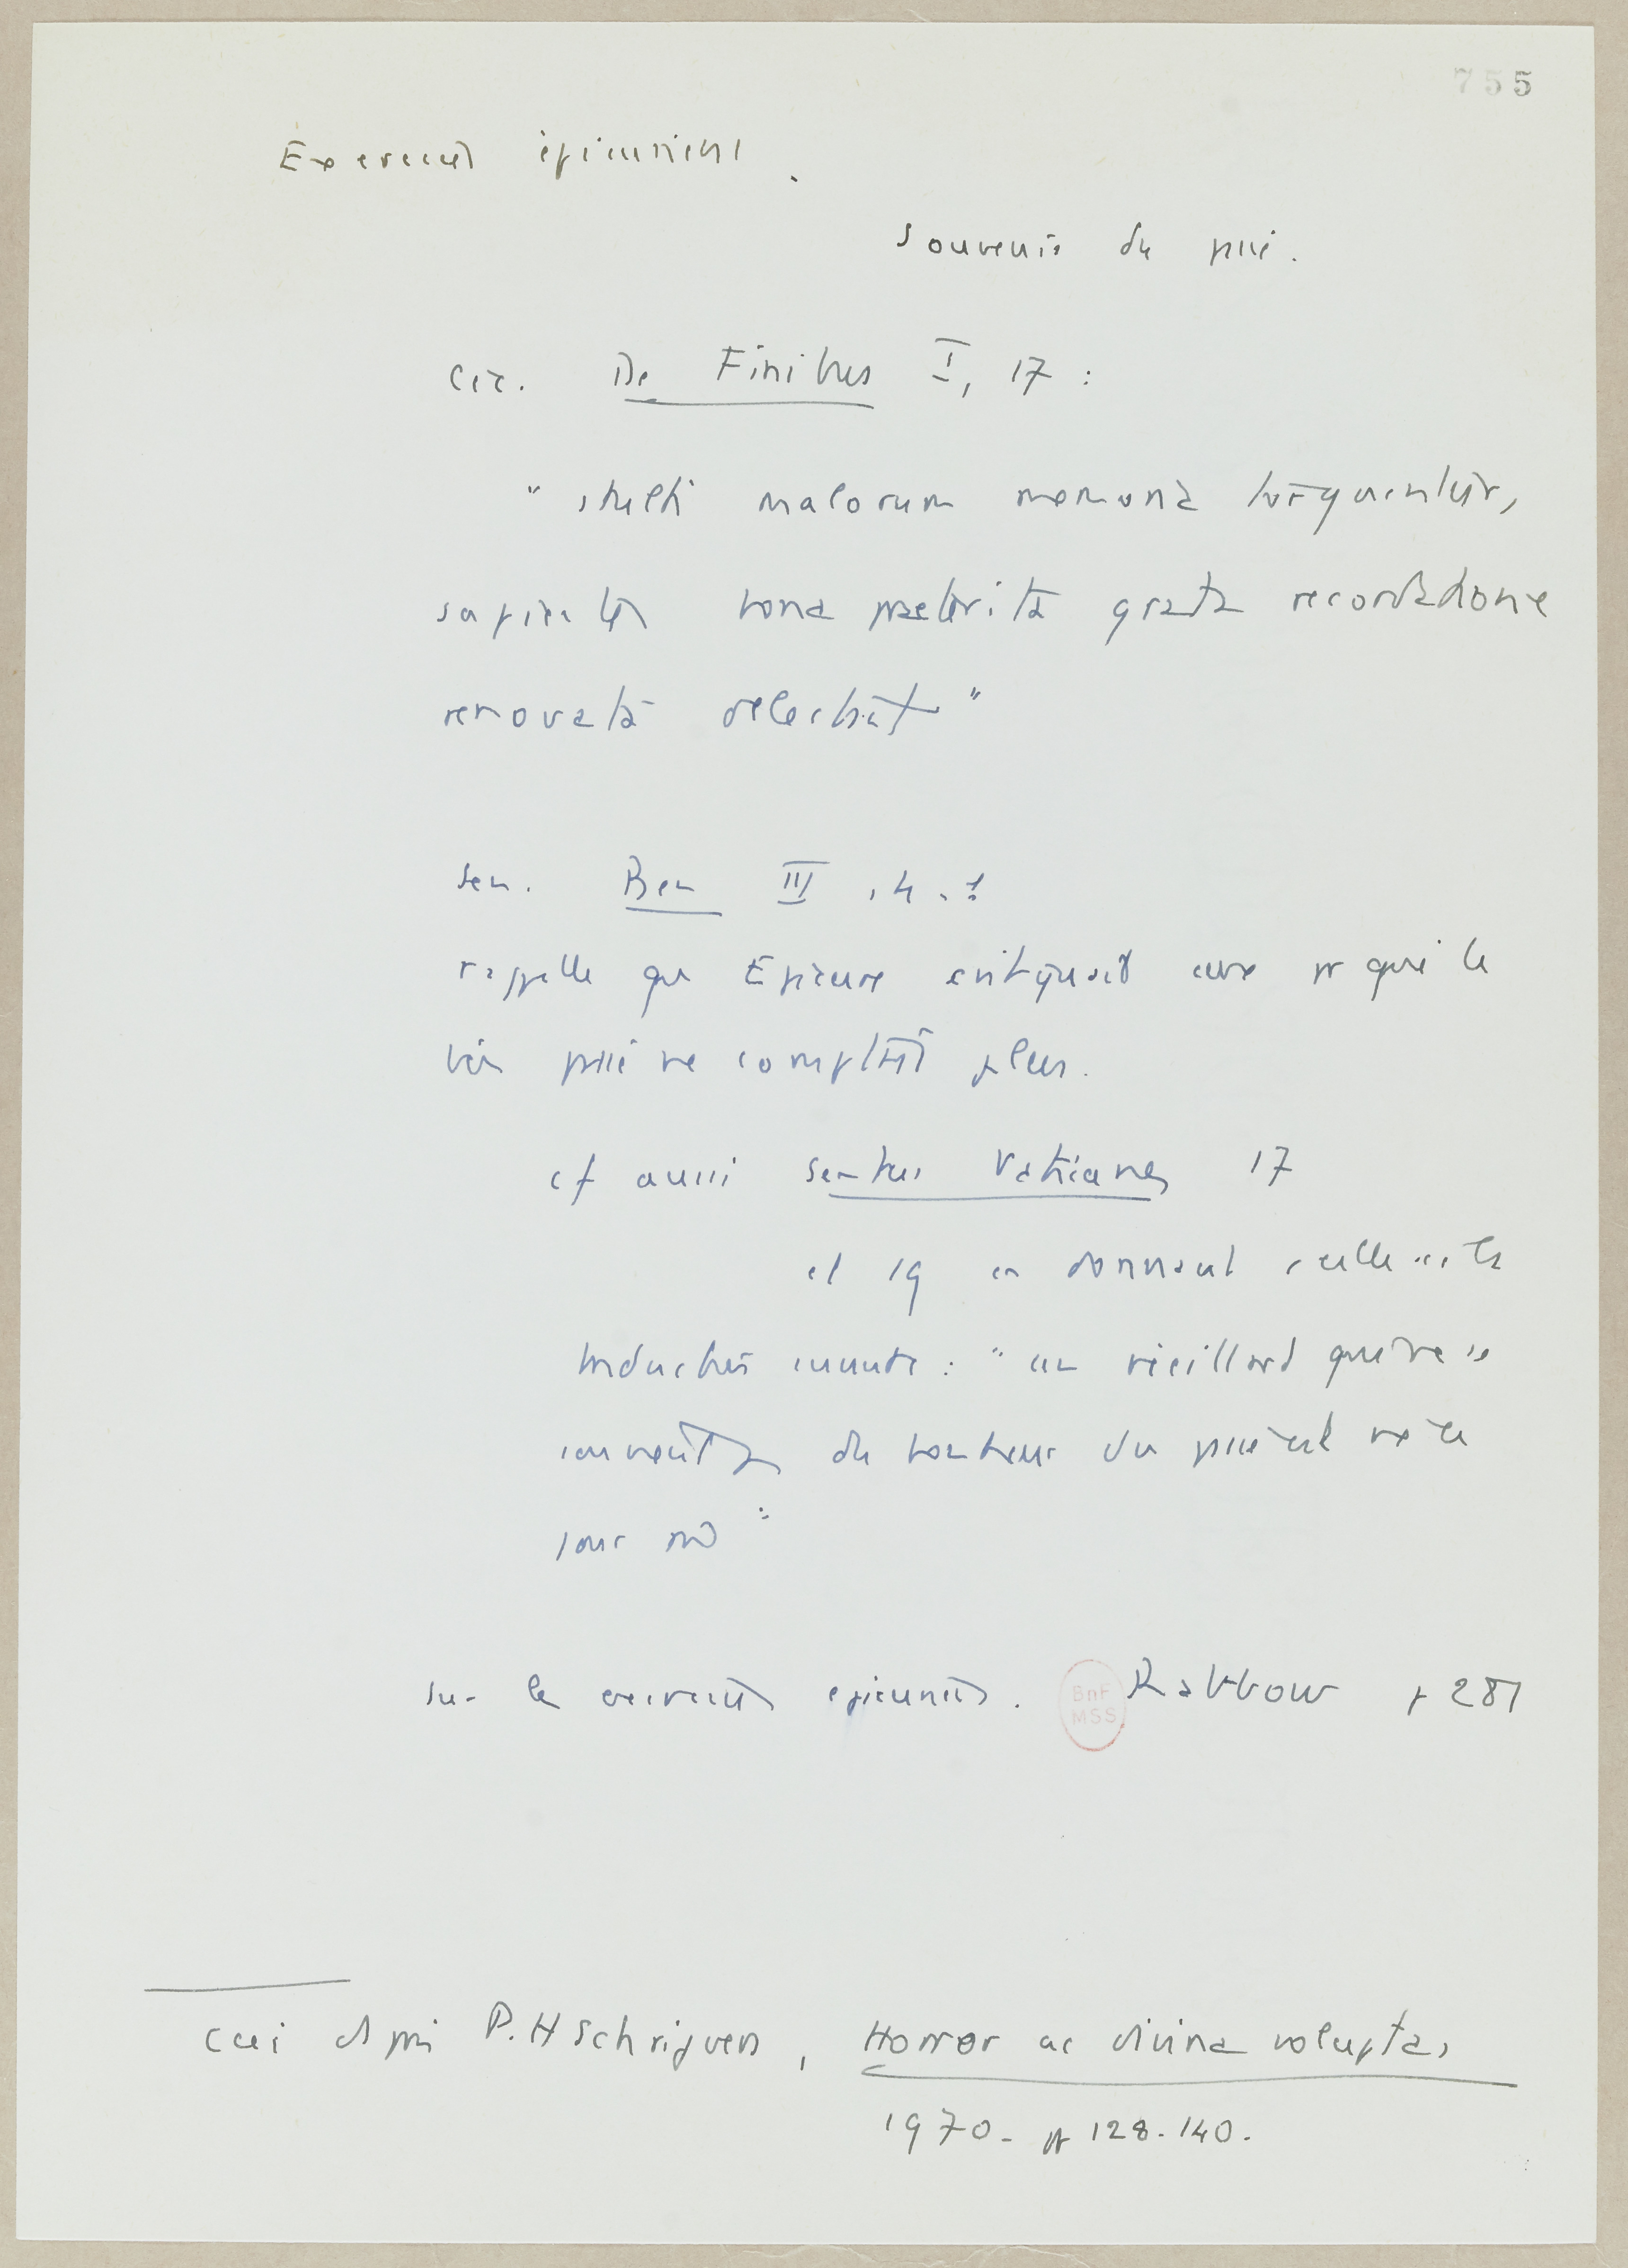 755
Exercices épicuriens.
Souvenir du passé.
Cic. De Finibus I, 17 :
" stulti malorum memoria torquentur,
sapientes bona praeterita grata recordatione
renovata delectant "
Sen. Ben III, 4. 1
rappelle que Epicure critiquait ceux pr qui le
bien passé ne comptait plus.
cf aussi Sentences Vaticanes 17
et 19 en donnant
traduction suivante : " un vieillard qui ne se
souvient pas du bonheur du passé est né le
jour mê "
Sur les exercices epicuriens. Rabbow p 281
BnF
MSS
Cité d'après P.H Schrijvers, Horror ac divina voluptas
1970 - pp 128-140.